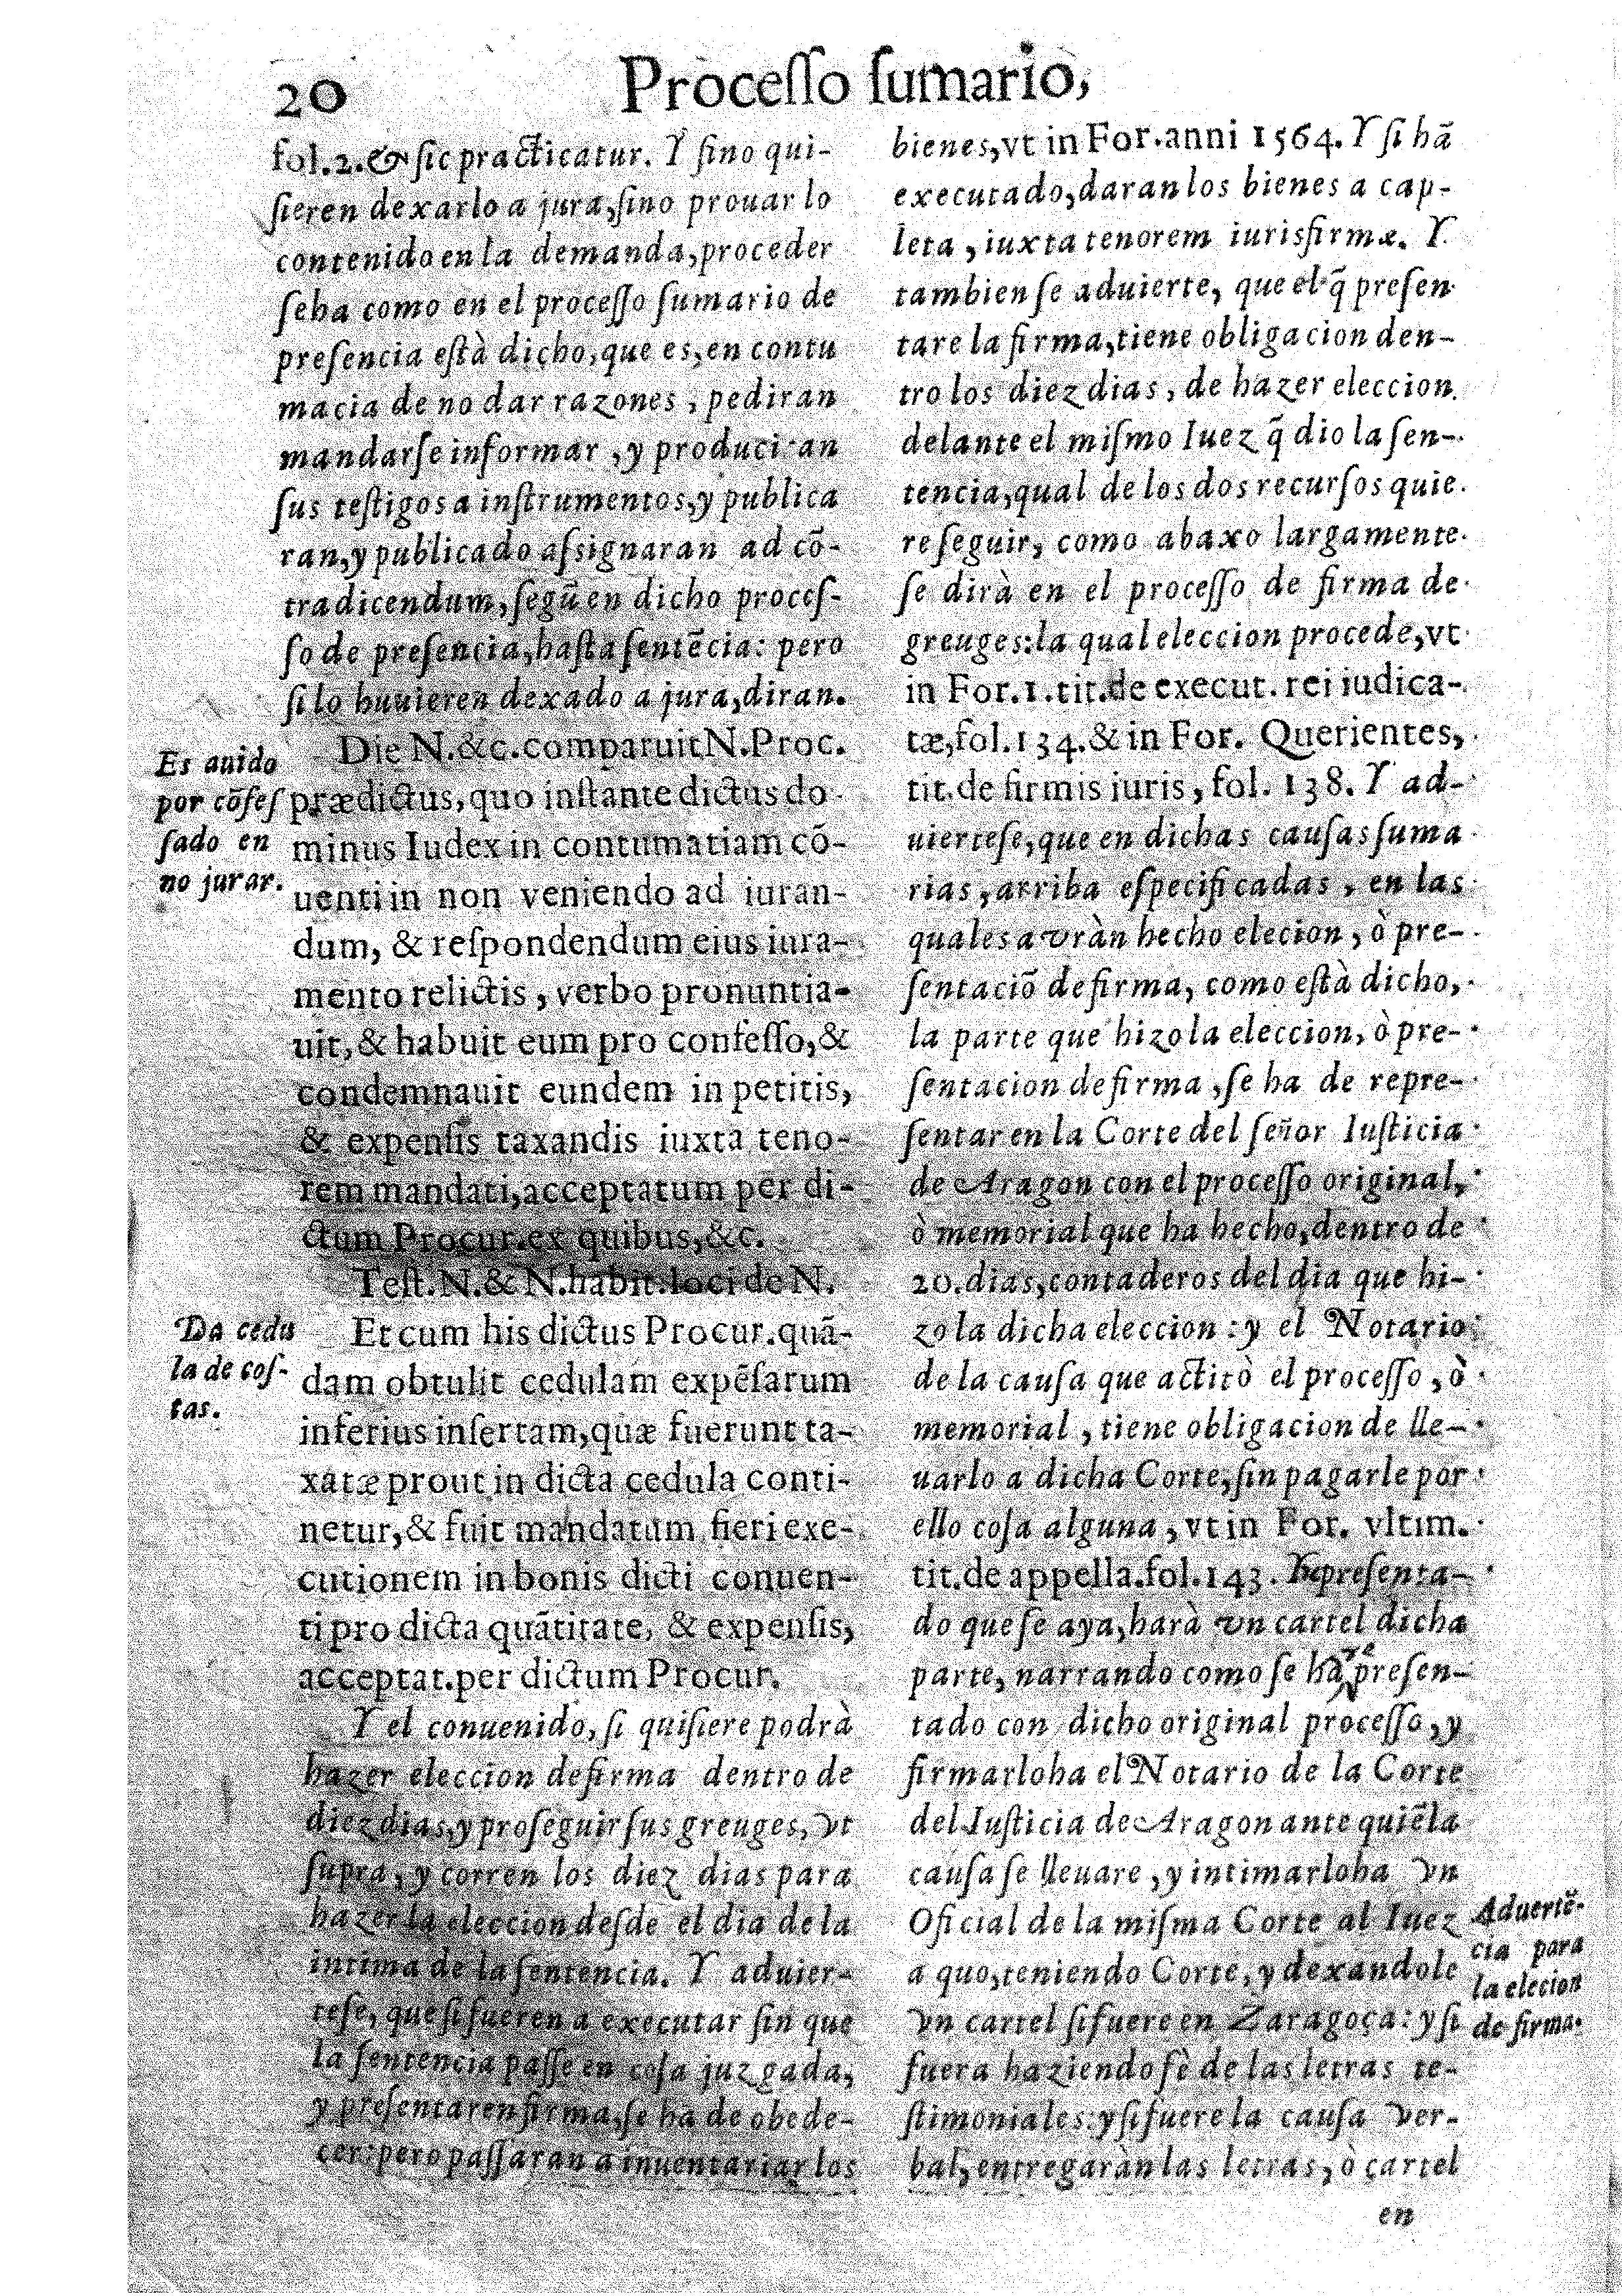 20
Processo sumario,
fol.2.& sic practicatur. Y sino qui-
sieren dexarlo a jura, sino prouar lo
contenido en la demanda, proceder
seha como en el processo sumario de
presencia està dicho, que es, en contu
macia de no dar razones, pediran
mandarse informar, y produciran
sus testigos a instrumentos, y publica
ran, y publicado assignaran ad cõ-
tradicendum, segũ en dicho proces-
so de presencia, hasta sentẽcia: pero
si lo huuieren dexado a jura, diran.
Es auido
por cõfes
sado en
no jurar.
Die N.&c. comparuit N. Proc.
prædictus, quo instante dictus do
minus Iudex in contumatiam cõ-
uenti in non veniendo ad iuran-
dum, & respondendum eius iura-
mento relictis, verbo pronuntia-
uit, & habuit eum pro confesso, &
condemnauit eundem in petitis,
& expensis taxandis iuxta teno-
rem mandati, acceptatum per di-
ctum Procur. ex quibus, &c.
Test. N. & N. habit. loci de N.
Da cedu
la de cos-
tas.
Et cum his dictus Procur. quã-
dam obtulit cedulam expẽsarum
inferius insertam, quæ fuerunt ta-
xatæ prout in dicta cedula conti-
netur, & fuit mandatum fieri exe-
cutionem in bonis dicti conuen-
ti pro dicta quãtitate, & expensis,
acceptat. per dictum Procur.
Y el conuenido, si quisiere podrà
hazer eleccion de firma dentro de
diez dias, y proseguir sus greuges, vt
supra, y corren los diez dias para
hazer la eleccion desde el dia de la
intima de la sentencia. Y aduier-
tese, que si fueren a executar sin que
la sentencia passe en cosa juzgada,
y presentaren firma, se ha de obede-
cer: pero passaran a inuentariar los
bienes, vt in For. anni 1564. Y si hã
executado, daran los bienes a cap-
leta, iuxta tenorem iurisfirmæ. Y
tambien se aduierte, que el q̃ presen
tare la firma, tiene obligacion den-
tro los diez dias, de hazer eleccion
delante el mismo Iuez q̃ dio la sen-
tencia, qual de los dos recursos quie.
re seguir, como abaxo largamente
se dirà en el processo de firma de
greuges: la qual eleccion procede, vt
in For. 1. tit. de execut. rei iudica-
tæ, fol. 134. & in For. Querientes,
tit. de firmis iuris, fol. 138. Y ad-
uiertese, que en dichas causas suma
rias, arriba especificadas, en las
quales avràn hecho elecion, ò pre-
sentaciõ de firma, como està dicho,
la parte que hizo la eleccion, ò pre-
sentacion de firma, se ha de repre-
sentar en la Corte del señor Iusticia
de Aragon con el processo original,
ò memorial que ha hecho, dentro de
20. dias, contaderos del dia que hi-
zo la dicha eleccion: y el Notario
de la causa que actitò el processo, ò
memorial, tiene obligacion de lle-
uarlo a dicha Corte, sin pagarle por
ello cosa alguna, vt in For. vltim.
tit. de appella. fol. 143. Representa-
do que se aya, harà vn cartel dicha
parte, narrando como se ha re presen-
tado con dicho original processo, y
firmarloha el Notario de la Corte
del Iusticia de Aragon ante quiẽ la
causa se lleuare, y intimarloha vn
Oficial de la misma Corte al Iuez
a quo, teniendo Corte, y dexandole
vn cartel si fuere en Zaragoça: y si
fuera haziendo fè de las letras te-
stimoniales: y si fuere la causa ver-
bal, entregaràn las letras, ò cartel
Aduertẽ-
cia para
la elecion
de firma.
en